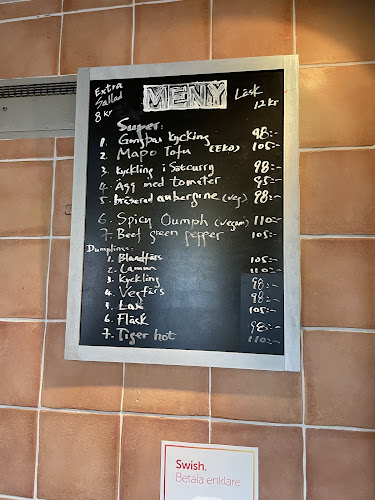 Extra
Sallad
8 kr
MENY
Läsk
12 kr
Super:
1. Gongbao kyckling 98:-
2. Mapo Tofu (EKO) 105:-
3. kyckling i Sötcurry 98:-
4. Ägg med tomater 95:-
5. Bräserad aubergine (veg) 98:-
6. Spicy Oumph (vegan) 110:-
7. Beef green pepper 105:-
Dumplings:
1. Blandfärs 105:-
2. Lamm 110:-
3. Kyckling 98:-
4. Vegfärs 98:-
5. Lax 105:-
6. Fläsk 98:-
7. Tiger hot 110:-
Swish.
Betala enklare